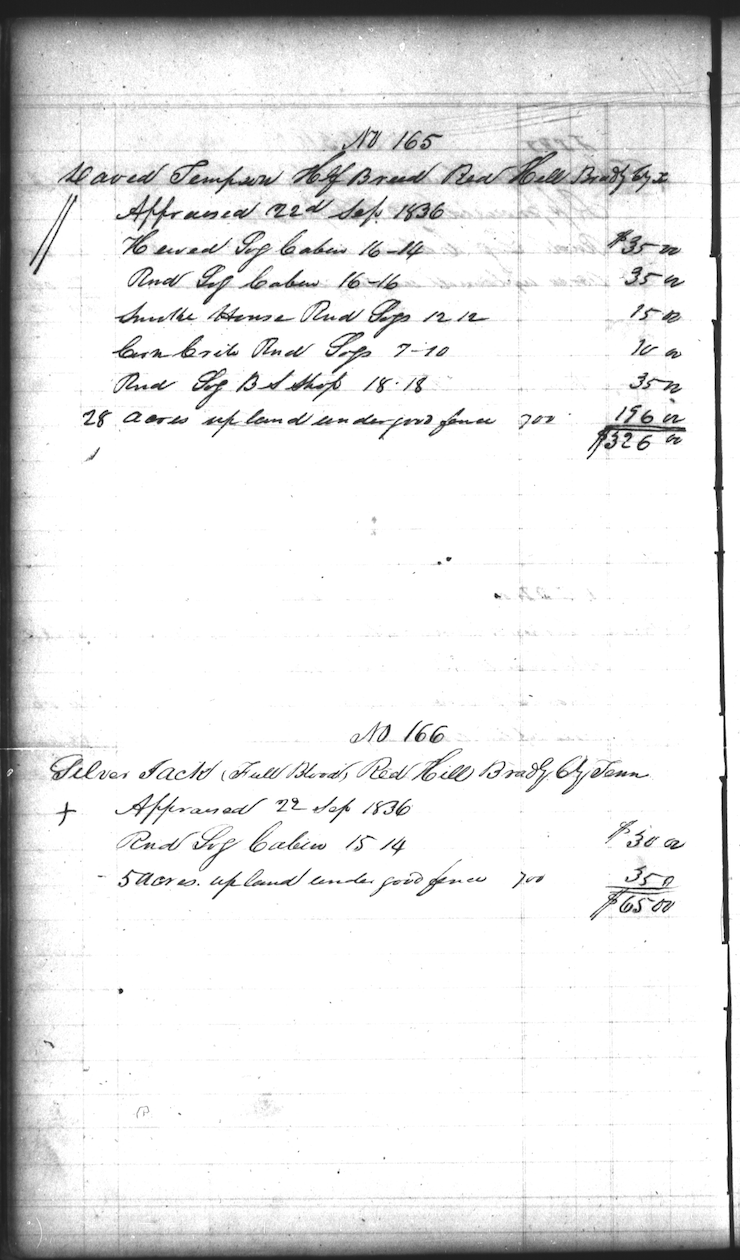 No 165
David Tempson Hf Breed Red Hill Brady Cy x
Appraised 22d Sep 1836
Hewed Log Cabin 16-14 $35 00
Rnd Log Cabin 16-16 35 00
Smoke House Rnd Logs 12 12 15 00
Corn Crib Rnd Logs 7-10 10 00
Rnd Log B S Shop 18-18 35 00
28 acres upland under good fence 700 196 00
$326 00
No 166
Silver Jack (Full Blood) Red Hill Brady Cy Tenn
+ Appraised 22 Sep 1836
Rnd Log Cabin 15-14 $30 00
5 acres. upland under good fence 700 35 0
$65 00